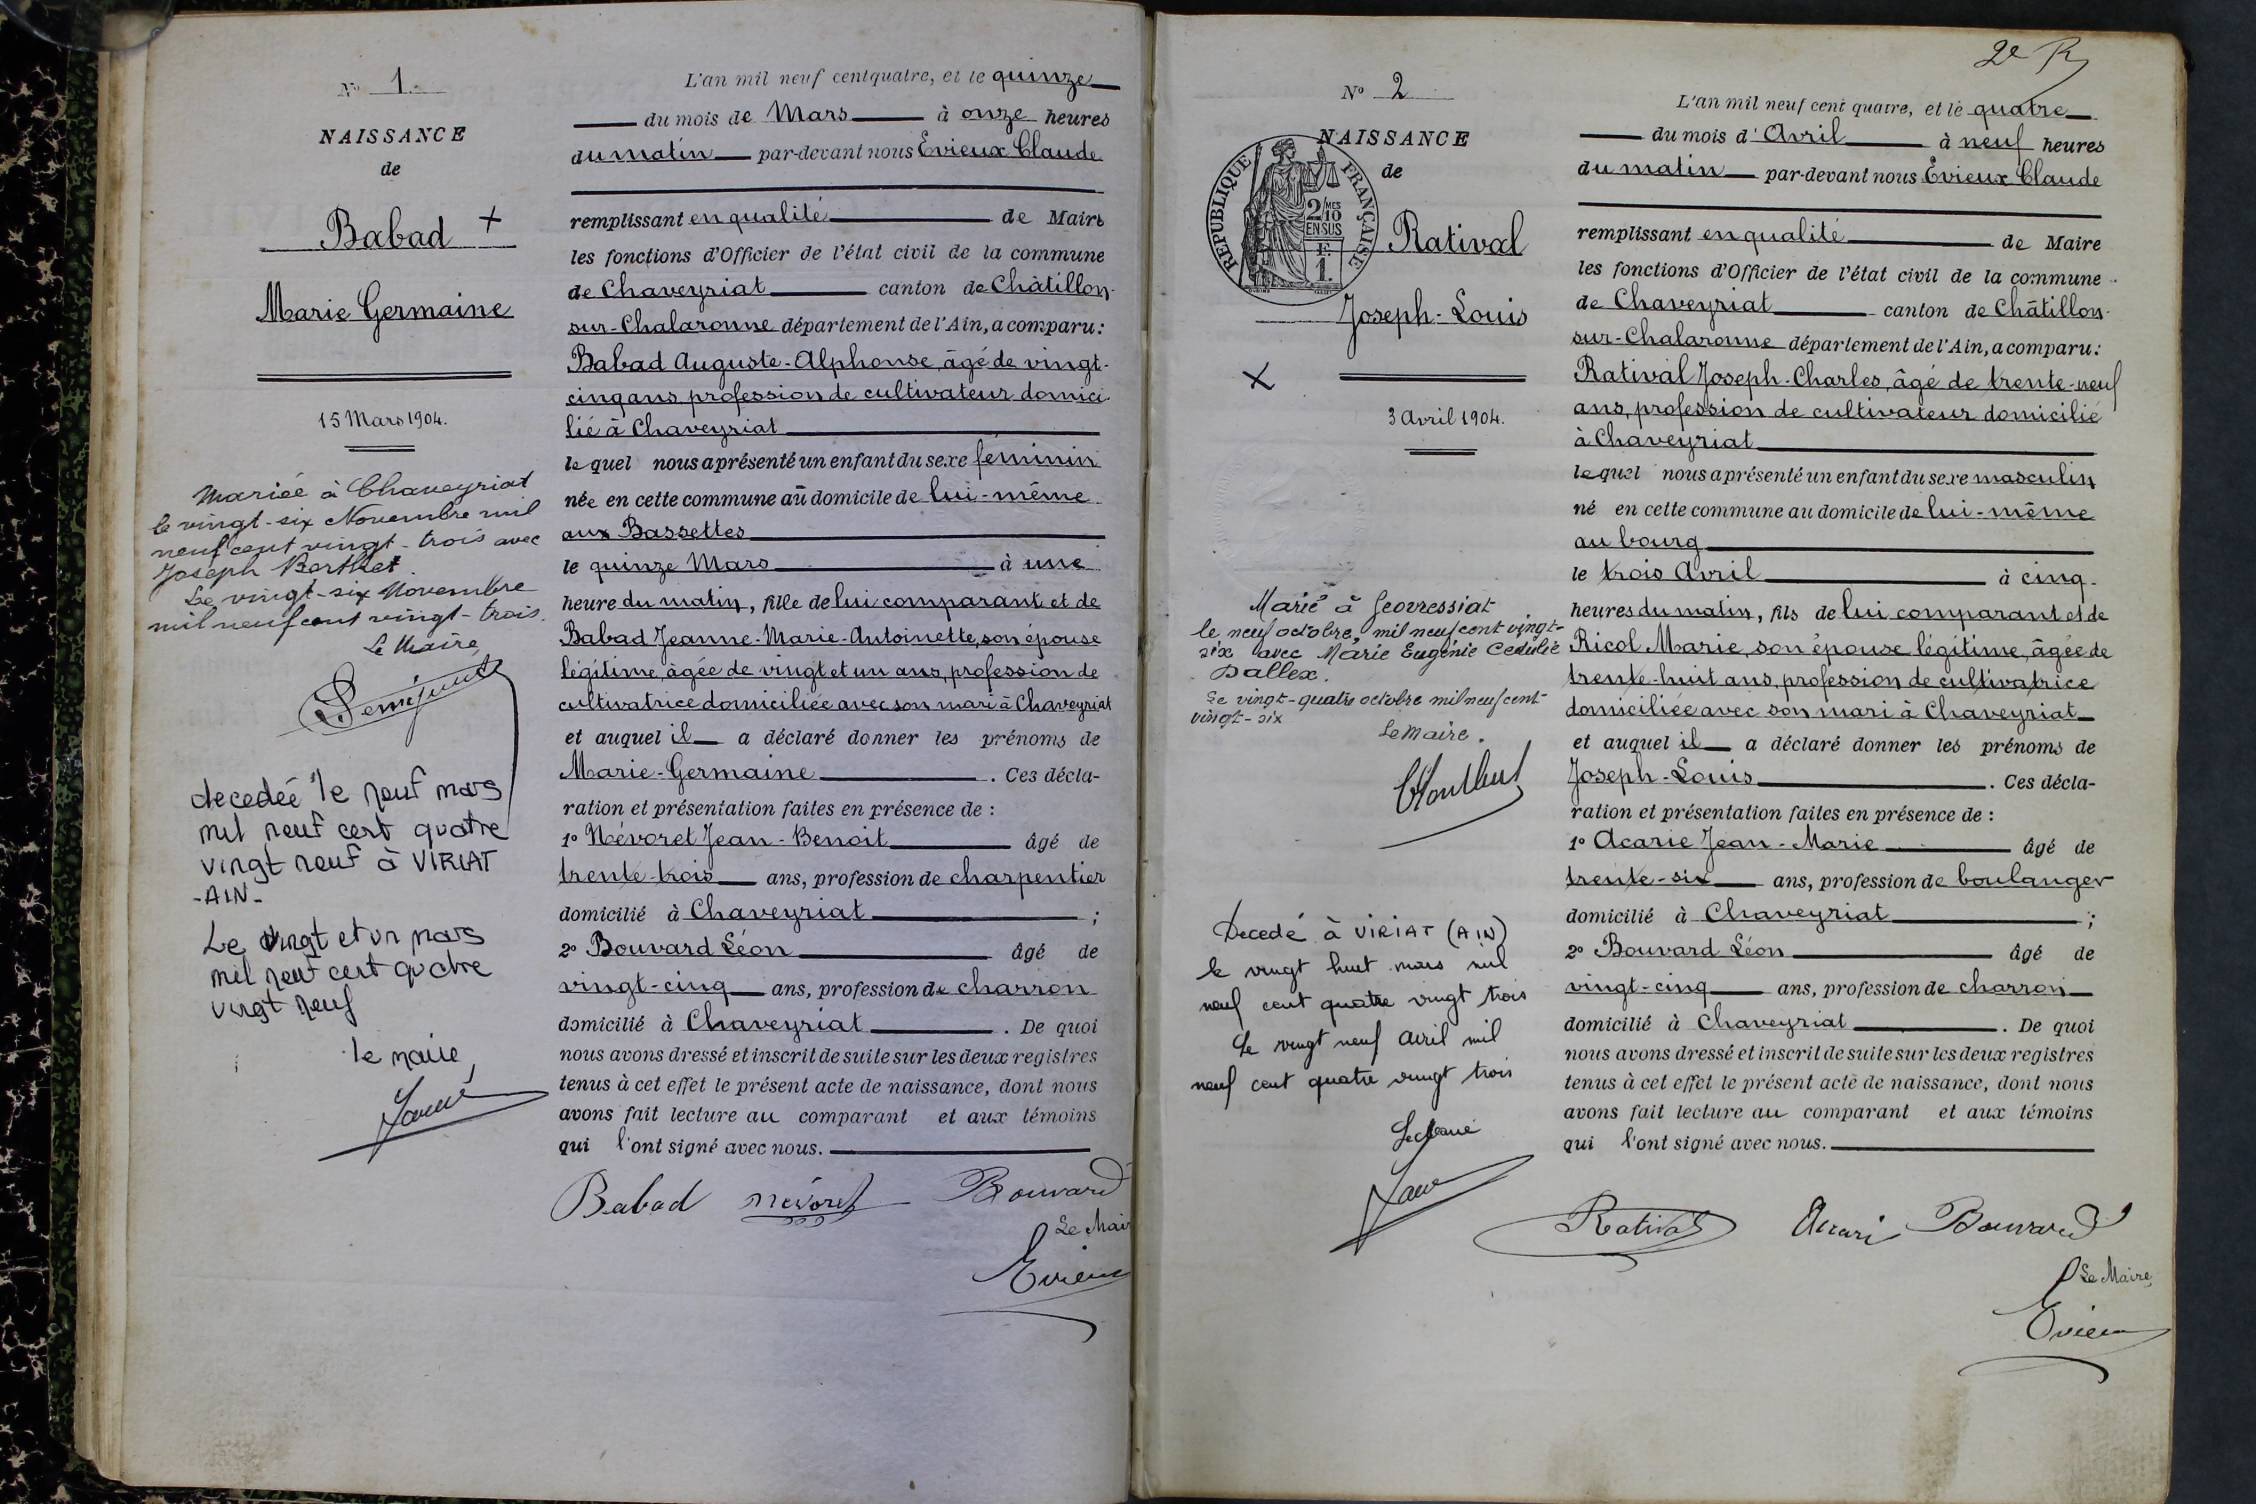 N° 1
NAISSANCE
de
Babad +
Marie Germaine
15 Mars 1904.
Mariée à Chaveyriat
le vingt-six Novembre mil
neuf cent vingt-trois avec
Joseph Berthet.
Le vingt-six Novembre
mil neuf cent vingt-trois.
Le Maire
decedée le neuf mars
mil neuf cent quatre
vingt neuf à VIRIAT
-AIN-
Le vingt et un mars
mil neuf cent quatre
vingt neuf
le maire,
L'an mil neuf cent quatre, et le quinze
du mois de Mars à onze heures
du matin par-devant nous Evieux Claude
remplissant en qualité de Maire
les fonctions d'Officier de l'état civil de la commune
de Chaveyriat canton de Châtillon-
sur-Chalaronne département de l'Ain, a comparu:
Babad Auguste-Alphonse, âgé de vingt-
cinq ans, profession de cultivateur domici-
lié à Chaveyriat
lequel nous a présenté un enfant du sexe féminin
née en cette commune au domicile de lui-même
aux Bassettes
le quinze Mars à une
heure du matin, fille de lui comparant et de
Babad Jeanne-Marie-Antoinette, son épouse
légitime, âgée de vingt et un ans, profession de
cultivatrice domiciliée avec son mari à Chaveyriat
et auquel il a déclaré donner les prénoms de
Marie-Germaine. Ces décla-
ration et présentation faites en présence de :
1° Névoret Jean-Benoit âgé de
trente-trois ans, profession de charpentier
domicilié à Chaveyriat ;
2° Bouvard Léon âgé de
vingt-cinq ans, profession de charron
domicilié à Chaveyriat. De quoi
nous avons dressé et inscrit de suite sur les deux registres
tenus à cet effet le présent acte de naissance, dont nous
avons fait lecture au comparant et aux témoins
qui l'ont signé avec nous.
Babad Névoret Bouvard
Le Mair
Evieux
2e R
N° 2
NAISSANCE
de
REPUBLIQUE FRANÇAISE
2/10 MES
EN SUS
F.
1.
Ratival
Joseph-Louis
X
3 Avril 1904.
Marié à Geovressiat
le neuf octobre, mil neuf cent vingt-
six avec Marie Eugénie Cedulie
Dallex.
Le vingt-quatre octobre mil neuf cent
vingt-six
Le Maire.
Decedé à VIRIAT (AIN)
le vingt huit mars mil
neuf cent quatre vingt trois
Le vingt neuf Avril mil
neuf cent quatre vingt trois
Le Maire
L'an mil neuf cent quatre, et le quatre
du mois d'Avril à neuf heures
du matin par-devant nous Evieux Claude
remplissant en qualité de Maire
les fonctions d'Officier de l'état civil de la commune
de Chaveyriat canton de Châtillon-
sur-Chalaronne département de l'Ain, a comparu:
Ratival Joseph-Charles, âgé de trente-neuf
ans, profession de cultivateur domicilié
à Chaveyriat
lequel nous a présenté un enfant du sexe masculin
né en cette commune au domicile de lui-même
au bourg
le trois Avril à cinq
heures du matin, fils de lui comparant et de
Ricol Marie, son épouse légitime, âgée de
trente-huit ans, profession de cultivatrice
domiciliée avec son mari à Chaveyriat
et auquel il a déclaré donner les prénoms de
Joseph-Louis. Ces décla-
ration et présentation faites en présence de :
1° Acarie Jean-Marie âgé de
trente-six ans, profession de boulanger
domicilié à Chaveyriat ;
2° Bouvard Léon âgé de
vingt-cinq ans, profession de charron
domicilié à Chaveyriat. De quoi
nous avons dressé et inscrit de suite sur les deux registres
tenus à cet effet le présent acte de naissance, dont nous
avons fait lecture au comparant et aux témoins
qui l'ont signé avec nous.
Ratival Acarie Bouvard
Le Maire,
Evieux